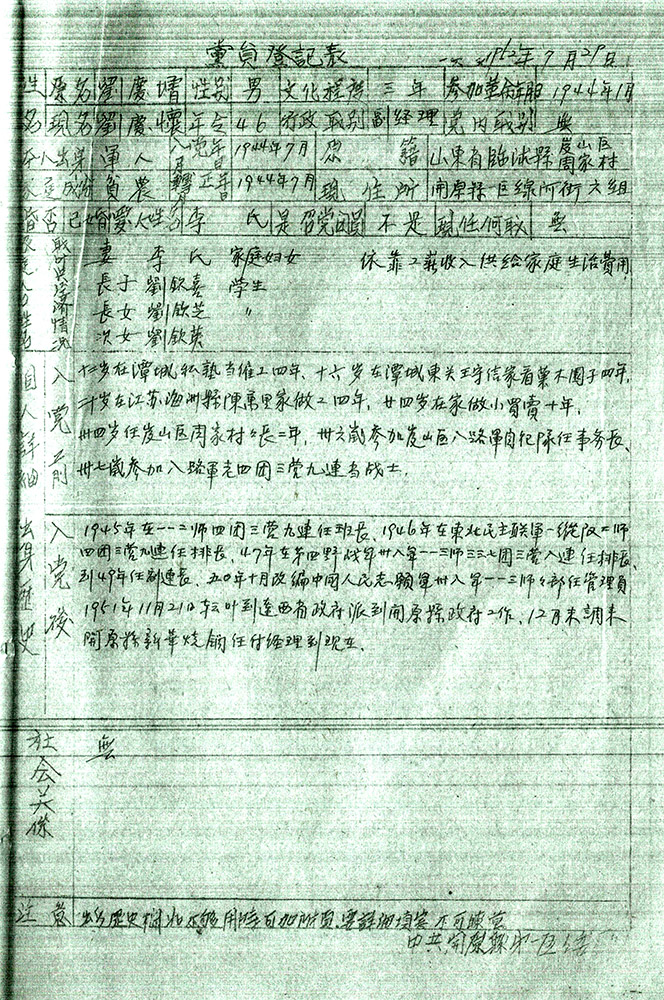 黨員登記表 一九五二年7月29日
姓 原名 劉慶增 性別 男 文化程度 三年 參加革命年月 1944年1月
名 現名 劉慶懷 年令 46 行政职别 副經理 党内职别 無
本人出身 軍人 入党年月 1944年7月 原籍 山東省臨沭縣岌山区周家村
家庭成份 貧農 轉正年月 1944年7月 現住所 開原縣一区綠所街六組
婚否 已婚 愛人姓名 李氏 是否党团員 不是 現任何职 無
妻 李氏 家庭妇女 依靠工薪收入供給家庭生活費用
長子 劉欽喜 学生
長女 劉欽芝 〃
次女 劉欽英
個人詳細出身歷史
入党前
十二岁在潭城私塾当雜工四年、十六岁在潭城東关王守信家看菓木園子四年、
二十岁在江苏海州縣陳萬里家做工四年，廿四岁在家做小買賣十年，
卅四岁任岌山区周家村村長二年，卅六歲參加岌山区八路軍自犯隊任事务長、
卅七歲參加八路軍老四团三营九連当战士.
入党後
1945年在一一二师四团三营九連任班長、1946年在東北民主联軍一縱队二师
四团三营九連任排長、47年在第四野战軍卅八軍一一三师三三七团三营八連任排長、
到49年任副連長、五0年十月改編中國人民志願軍卅八軍一一三师师部任管理員
1951年11月21日轉叶到遼西省政府派到開原縣政府工作、12月末調来
開原縣新華燒鍋任付經理到現在.
社会关係
無
注意 出身歷史欄 不够用時可加附頁，要詳細填寫不可
中共開原縣第一区